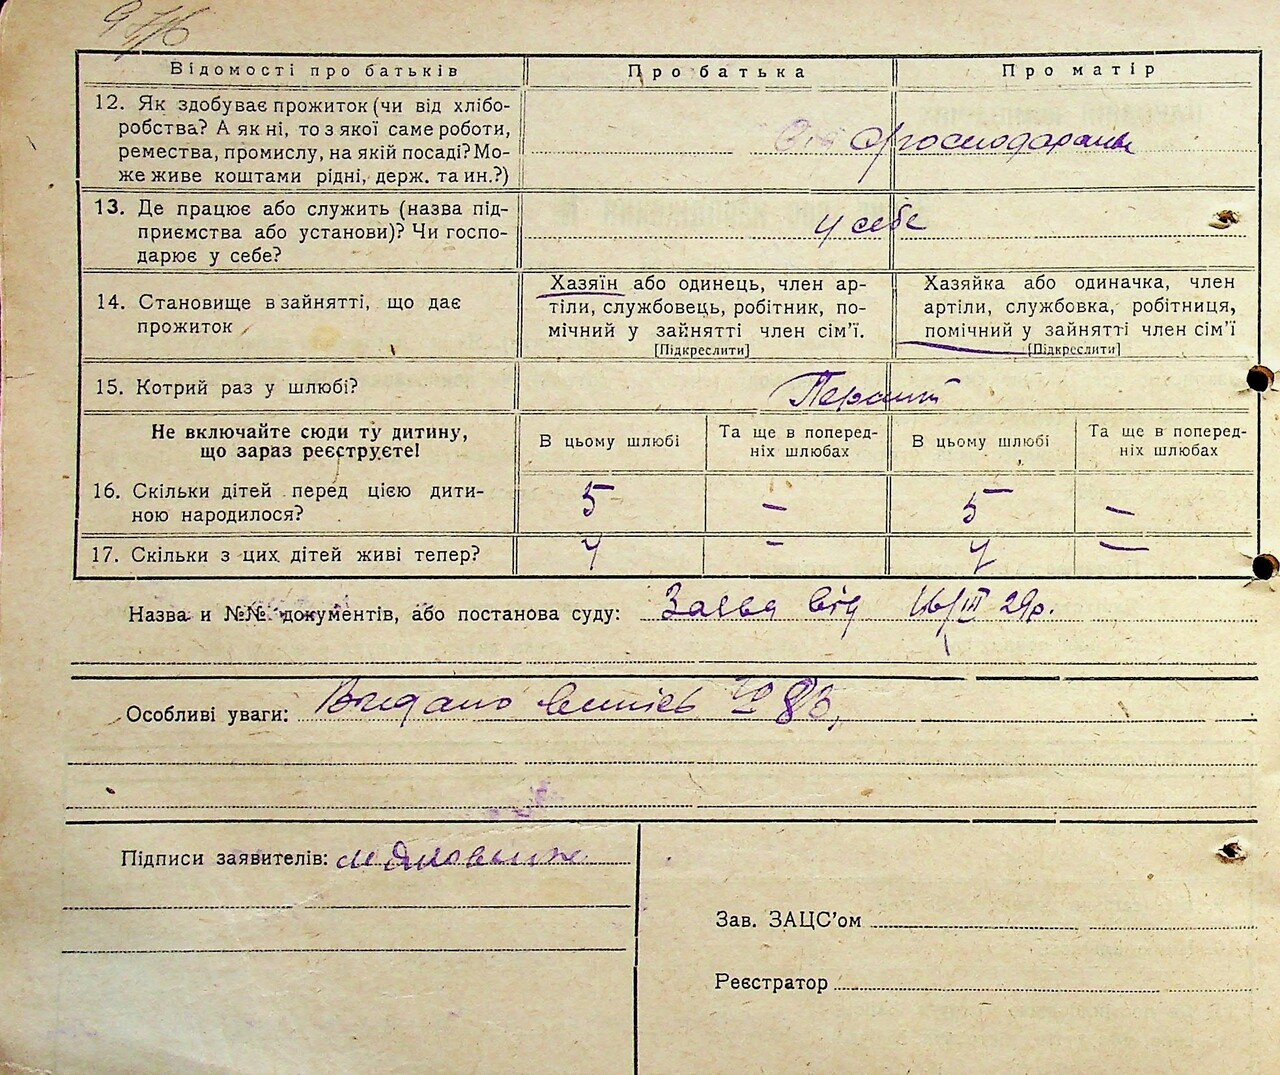 Відомості про батьків Про батька Про матір
12. Як здобуває прожиток (чи від хлібо-
робства? А як ні, то з якої саме роботи,
ремества, промислу, на якій посаді? Мо-
же живе коштами рідні, держ. та ин.?)
13. Де працює або служить (назва під-
приємства або установи)? Чи госпо-
дарює у себе?
у себе
14. Становище в зайнятті, що дає
прожиток
Хазяїн або одинець, член ар-
тілі, службовець, робітник, по-
мічний у зайнятті член сім'ї.
[Підкреслити]
Хазяйка або одиначка, член
артіли, службовка, робітниця,
помічний у зайнятті член сім'ї
[Підкреслити]
15. Котрий раз у шлюбі?
Перший
Не включайте сюди ту дитину,
що зараз реєструєте!
В цьому шлюбі
Та ще в поперед-
ніх шлюбах
В цьому шлюбі
Та ще в поперед-
ніх шлюбах
16. Скільки дітей перед цією дити-
ною народилося?
5 – 5 –
17. Скільки з цих дітей живі тепер? 4 – 4 –
Назва и №№ документів, або постанова суду: Заява від 16/III 29р.
Особливі уваги: Видано витяг 83
Підписи заявителів:
Зав. ЗАЦС'ом
Реєстратор